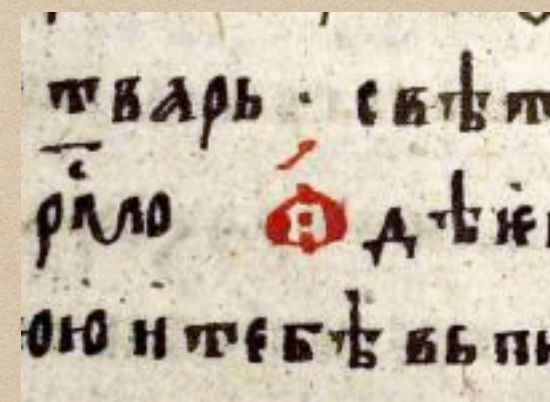 тварь · свѣт
рⷭ҇лло Ѻдѣꙗ
ою и тебѣ вь пи